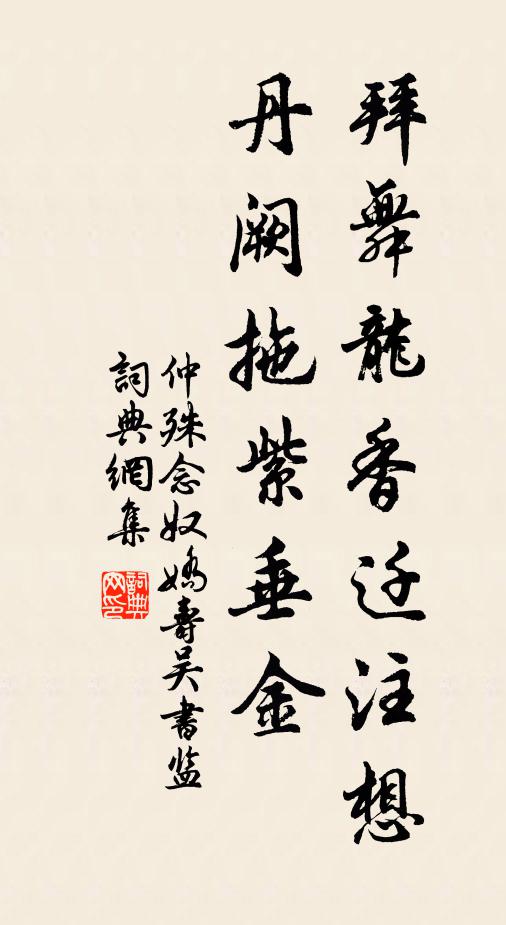 拜舞龍香迁注想
丹阙拖紫垂金
仲殊念奴嬌壽吴書监
詞典網集
詞典网印